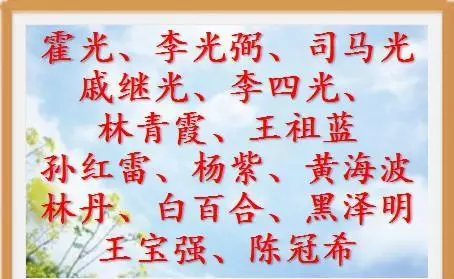 霍光、李光弼、司马光
戚继光、李四光、
林青霞、王祖蓝
孙红雷、杨紫、黄海波
林丹、白百合、黑泽明
王宝强、陈冠希